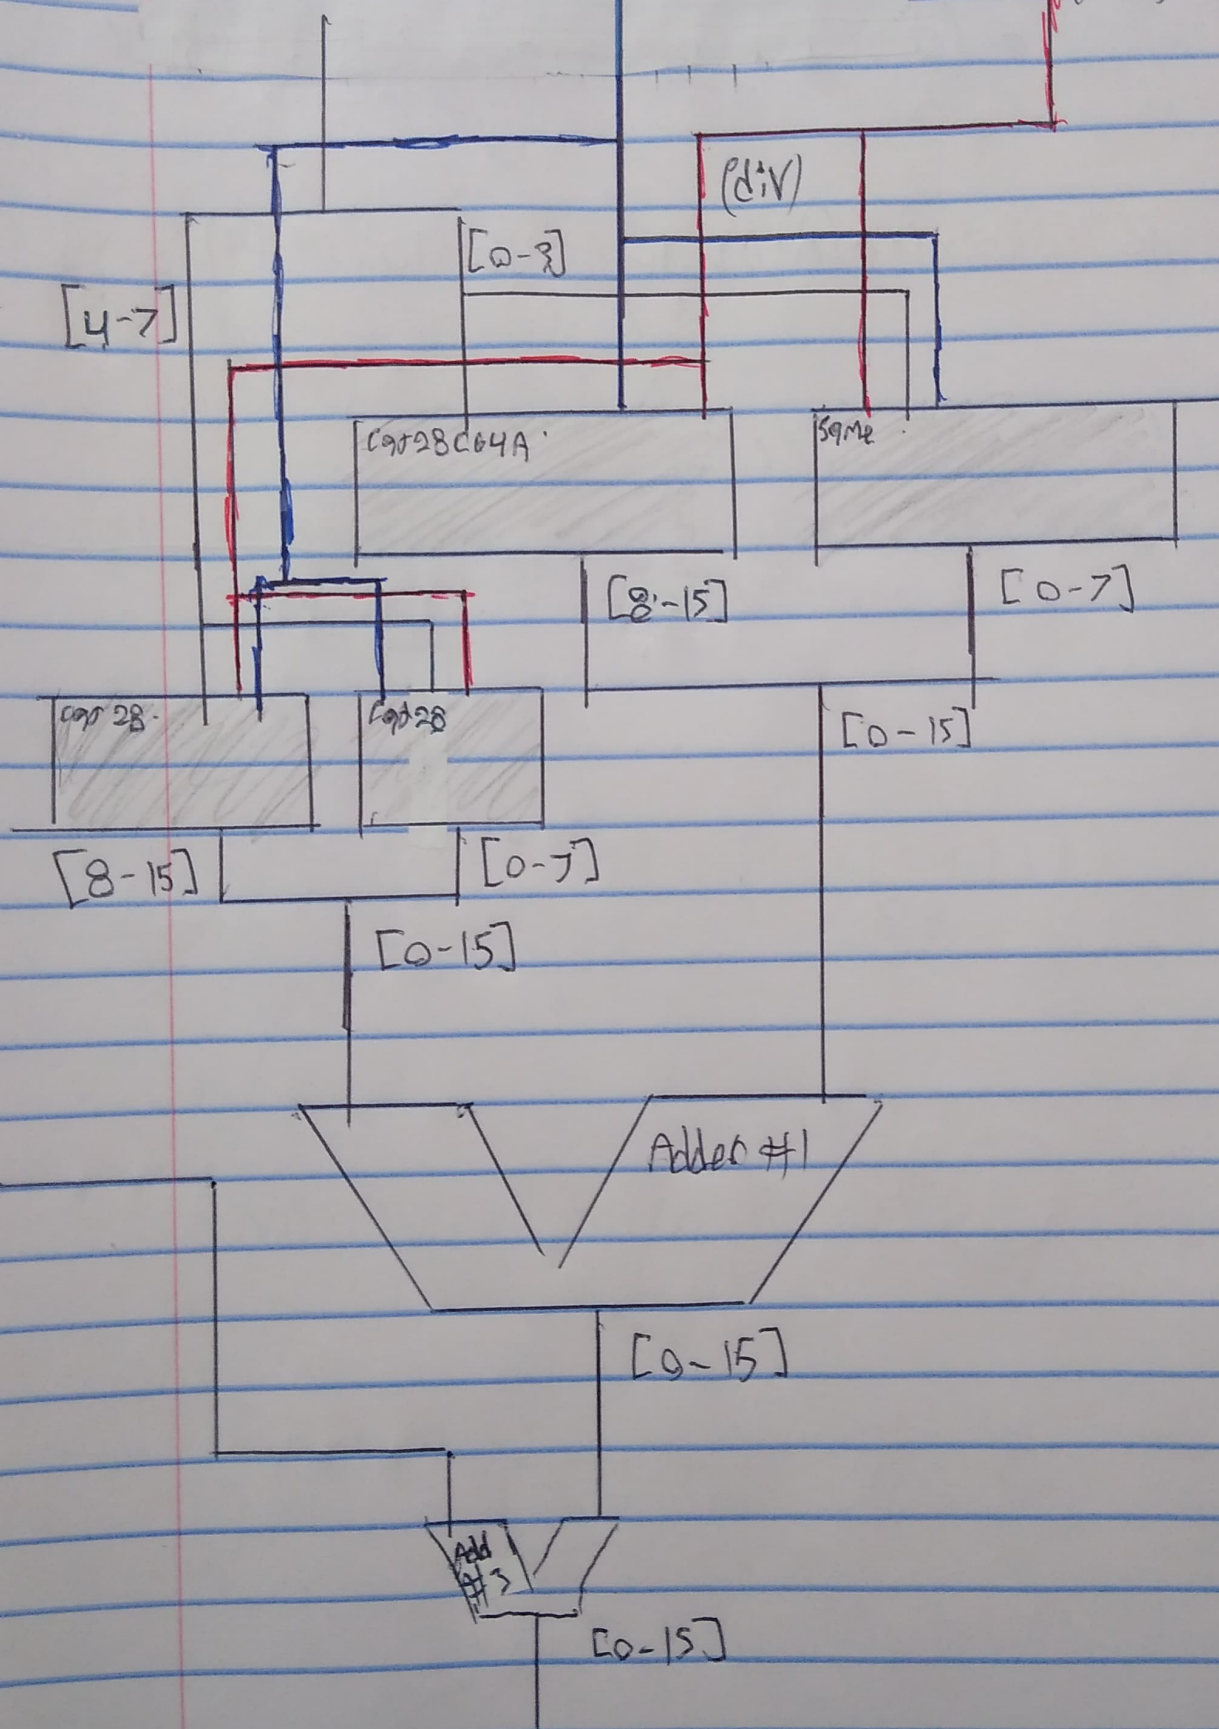 (div)
[0-3]
[4-7]
Cat28C64A
Same
[8-15]
[0-7]
Cat 28
Cat28
[0-15]
[8-15]
[0-7]
[0-15]
Adder #1
[0-15]
Add
#3
[0-15]